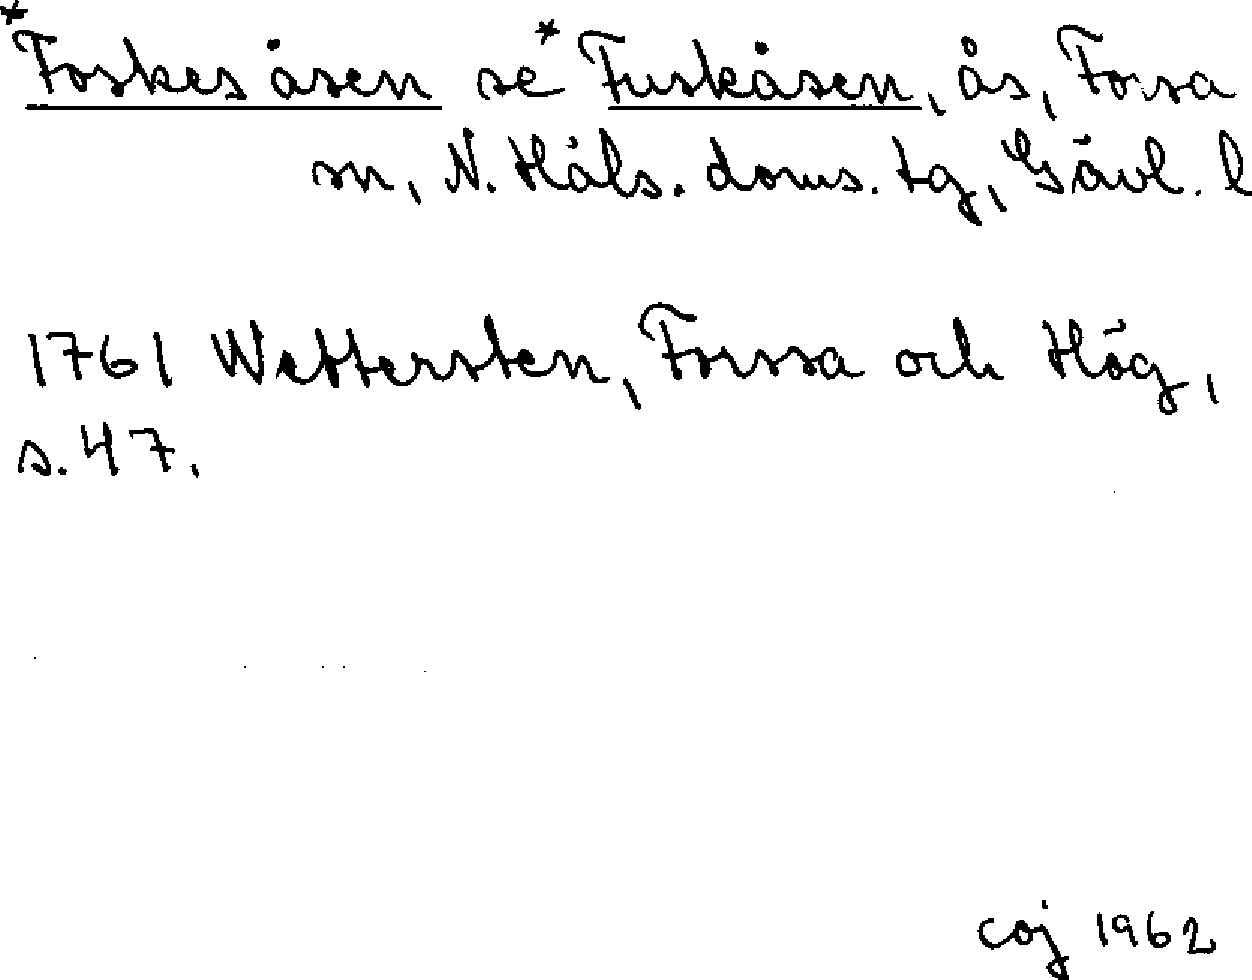 *Foskes åsen se *Fuskåsen, ås, Forsa
sn, N. Häls. doms. tg, Gävl. l
1761 Wettersten, Forssa och Hög,
s. 47.
coj 1962